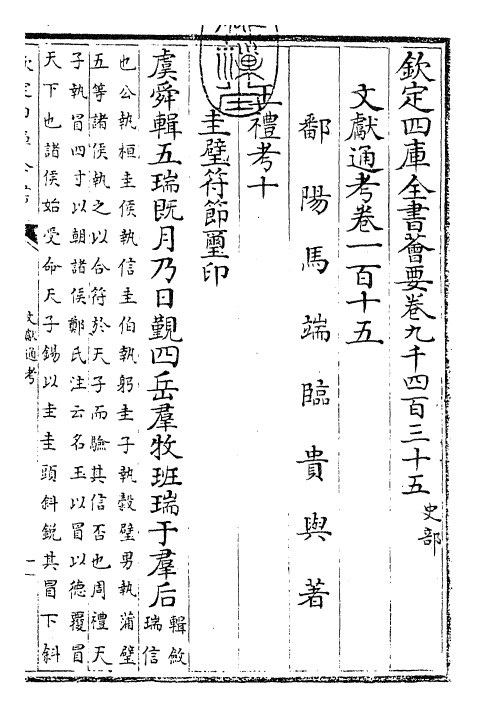 欽定四庫全書薈要卷九千四百三十五
史部
文獻通考卷一百十五
鄱陽馬端臨貴與著
王禮考十
圭璧符節璽印
虞舜輯五瑞既月乃日覲四岳羣牧班瑞于羣后
輯斂
瑞信
也公執桓圭侯執信圭伯執躬圭子執穀璧男執蒲璧
五等諸侯執之以合符於天子而驗其信否也周禮天
子執冒四寸以朝諸侯鄭氏注云名玉以冒以德覆冒
天下也諸侯始受命天子錫以圭圭頭斜銳其冒下斜
文獻通考
一